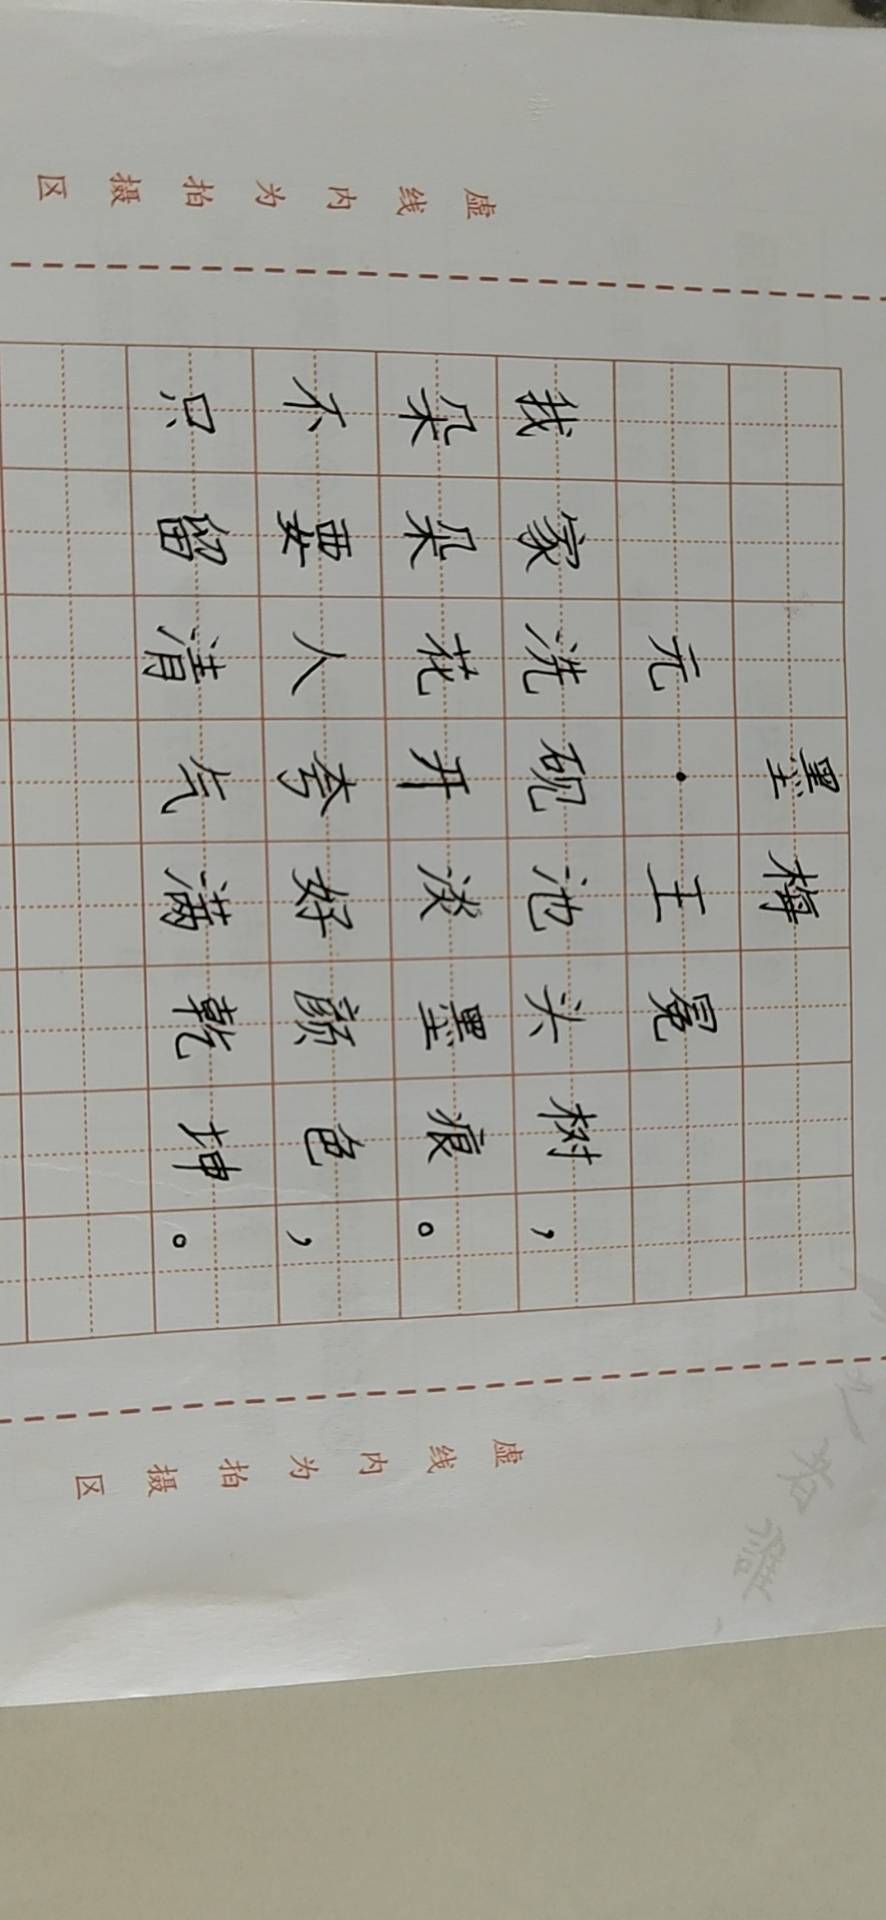 虚线内为拍摄区
墨梅
元·王冕
我家洗砚池头树，
朵朵花开淡墨痕。
不要人夸好颜色，
只留清气满乾坤。
虚线内为拍摄区